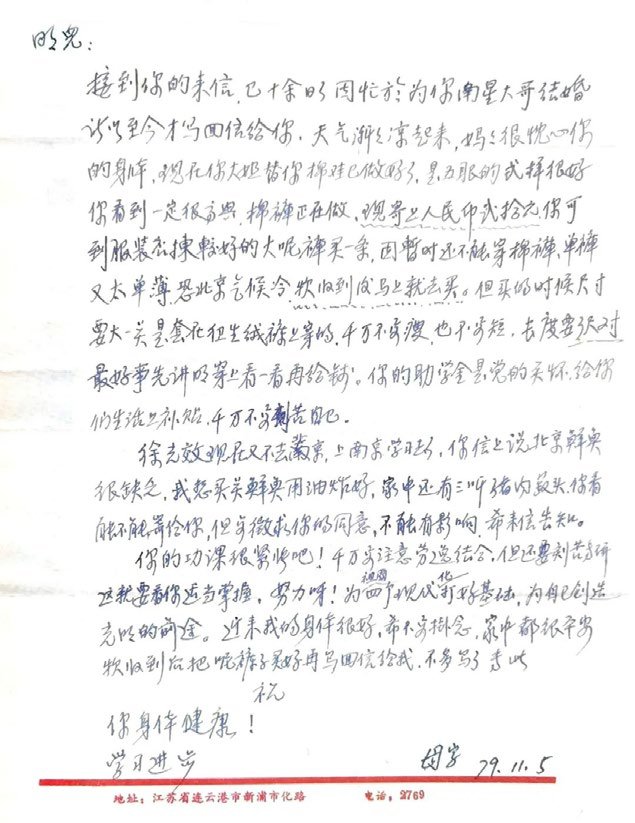 明儿：
接到你的来信，已十余日，因忙於为你南星大哥结婚
所以至今才写回信给你，天气渐々凉起来，妈々很忧心你
的身体，现在你大姐替你棉袄已做好了，是五服的式样很好
你看到一定很高兴，棉裤正在做，现寄上人民币贰拾元你可
到服装店拣较好的大呢裤买一条，因暂时还不能穿棉裤，单裤
又太单薄恐北京气候冷，款收到后马上就去买。但买的时候尺寸
要大一点是套在卫生绒裤上穿的，千万不要瘦，也不要短，长度要
最好事先讲明穿上看一看再给钱。你的助学金是党的关怀，给你
们生活上补贴，千万不要刻苦自已。
徐克效现在又不去北京，上南京学习去了，你信上说北京鲜鱼
很缺乏，我想买点鲜鱼用油炸好，家中还有三听猪肉罐头，你看
能不能寄给你，但要征求你的同意，不能有影响，希来信告知。
你的功课很紧张吧！千万要注意劳逸结合，但还要刻苦钻研
这就要看你适当掌握，努力呀！为祖国四个现代化打好基础，为自己创造
光明的前途。近来我的身体很好，希不要掛念，家中都很平安
款收到后把呢裤子买好再写回信给我，不多写了 专此
祝
你身体健康！
学习进步
母字 79.11.5
地址：江苏省连云港市新浦市化路 电话：2769